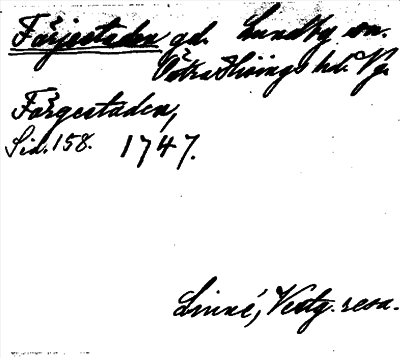 Färjestaden gd. Lundby sn.
Östra Hisings hd. Vg.
Färgestaden,
Sid. 158. 1747.
Linné, Vestg. resa.